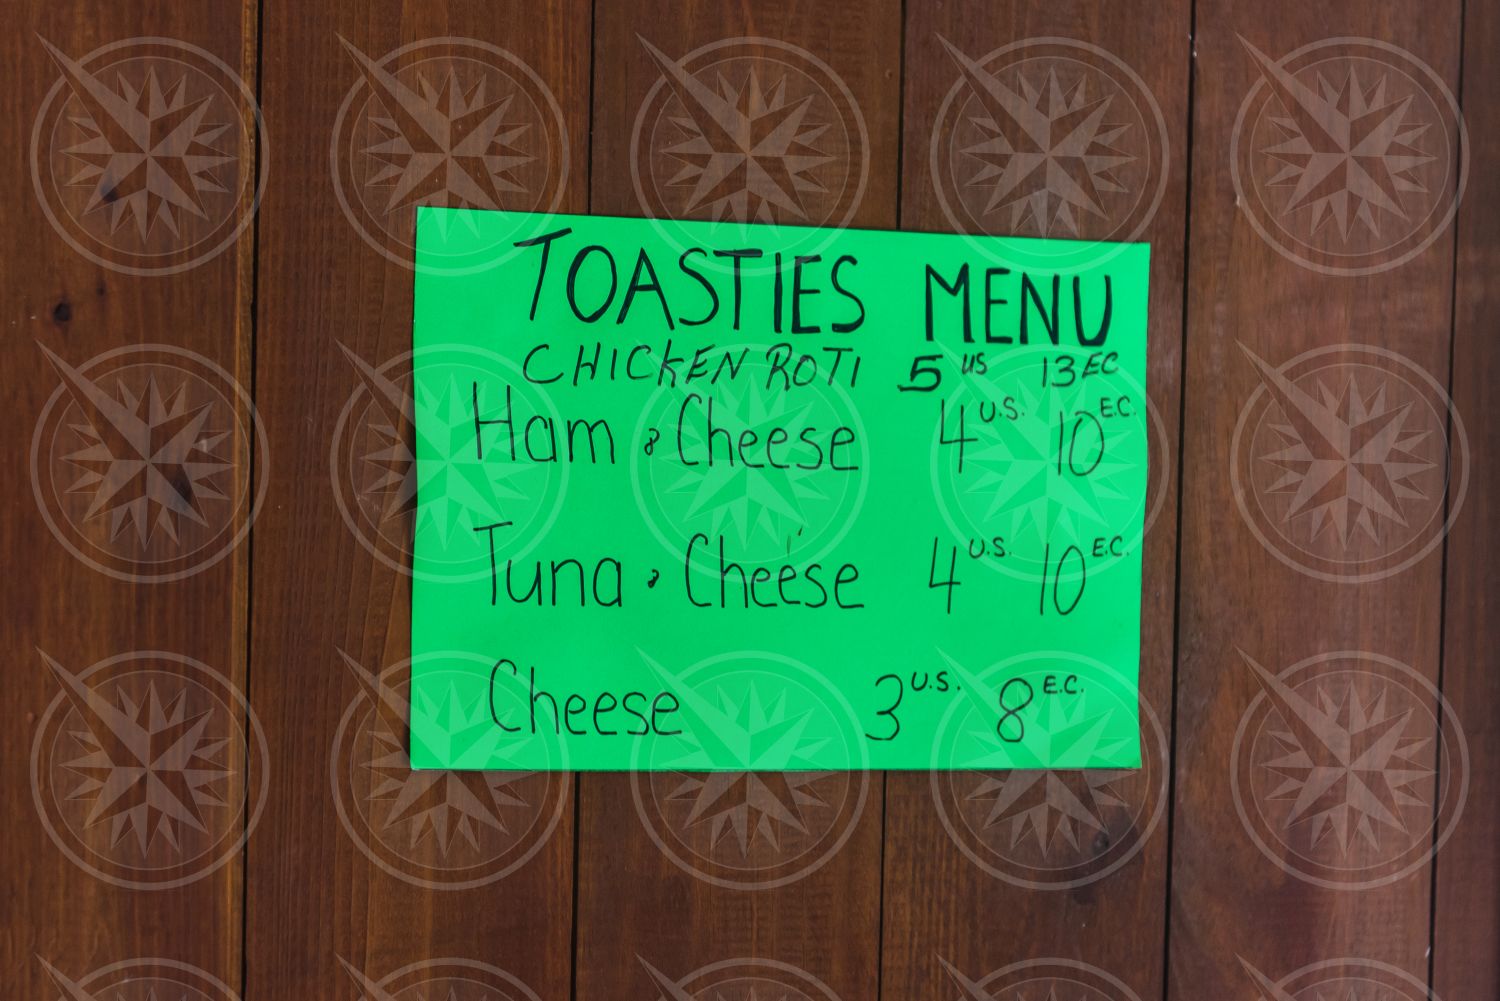 TOASTIES MENU
CHICKEN ROTI 5 US 13 EC
Ham & Cheese 4 U.S. 10 E.C.
Tuna & Cheese 4 U.S. 10 E.C.
Cheese 3 U.S. 8 E.C.